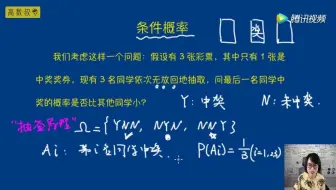 高数叔
腾讯视频
条件概率
奖
我们考虑这样一个问题:假设有3张彩票,其中只有1张是
中奖奖券,现有3名同学依次无放回地抽取,问最后一名同学中
奖的概率是否比其他同学小?
Y:中奖 N:未中奖
Ω={YNN, NYN, NNY}
Ai:第i名同学中奖. P(Ai)=1/3(i=1,2,3)